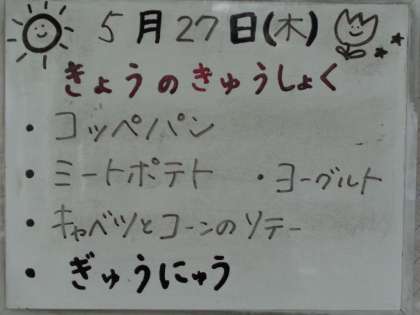 5月27日(木)
きょうのきゅうしょく
・コッペパン
・ミートポテト ・ヨーグルト
・キャベツとコーンのソテー
・ぎゅうにゅう